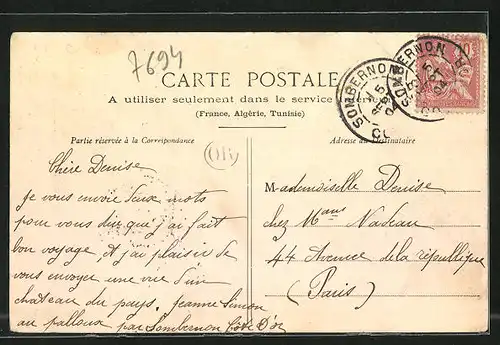 7694
CARTE POSTALE
A utiliser seulement dans le service intérieur
(France, Algérie, Tunisie)
Partie réservée à la Correspondance
Adresse du Destinataire
SOMBERNON
SOMBERNON
Chère Denise
Je vous envoie deux mots
pour vous dire que j'ai fait
bon voyage et j'ai plaisir de
vous envoyer une vue d'un
chateau du pays. Jeanne Simon
au palloux par Sombernon Côte D'or
Mademoiselle Denise
chez Mans Nadeau
44 Avenue de la république
(Paris)